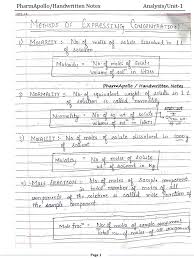 PharmApollo/Handwritten Notes Analysis/Unit-1
METHODS OF EXPRESSING CONCENTRATIONS
1) MOLARITY : No of moles of solute dissolved in 1 L
of solution
Molarity = No of moles of solute
Volume of solⁿ in liters
PharmApollo / Handwritten Notes
2) NORMALITY : No of equivalent weight of solute in 1 L
of solution is called normality
Normality =
3) MOLALITY : No of moles of solute dissolved in 1000 g
of solvent
Molality = No of moles of solute
wt of solvent in kg
4) MOLE FRACTION : No of moles of sample component
to total number of moles of all
components of the solution is called mole fraction
of the sample component
Mole fracⁿ = No of moles of sample component
total no of moles of all component
Page 1